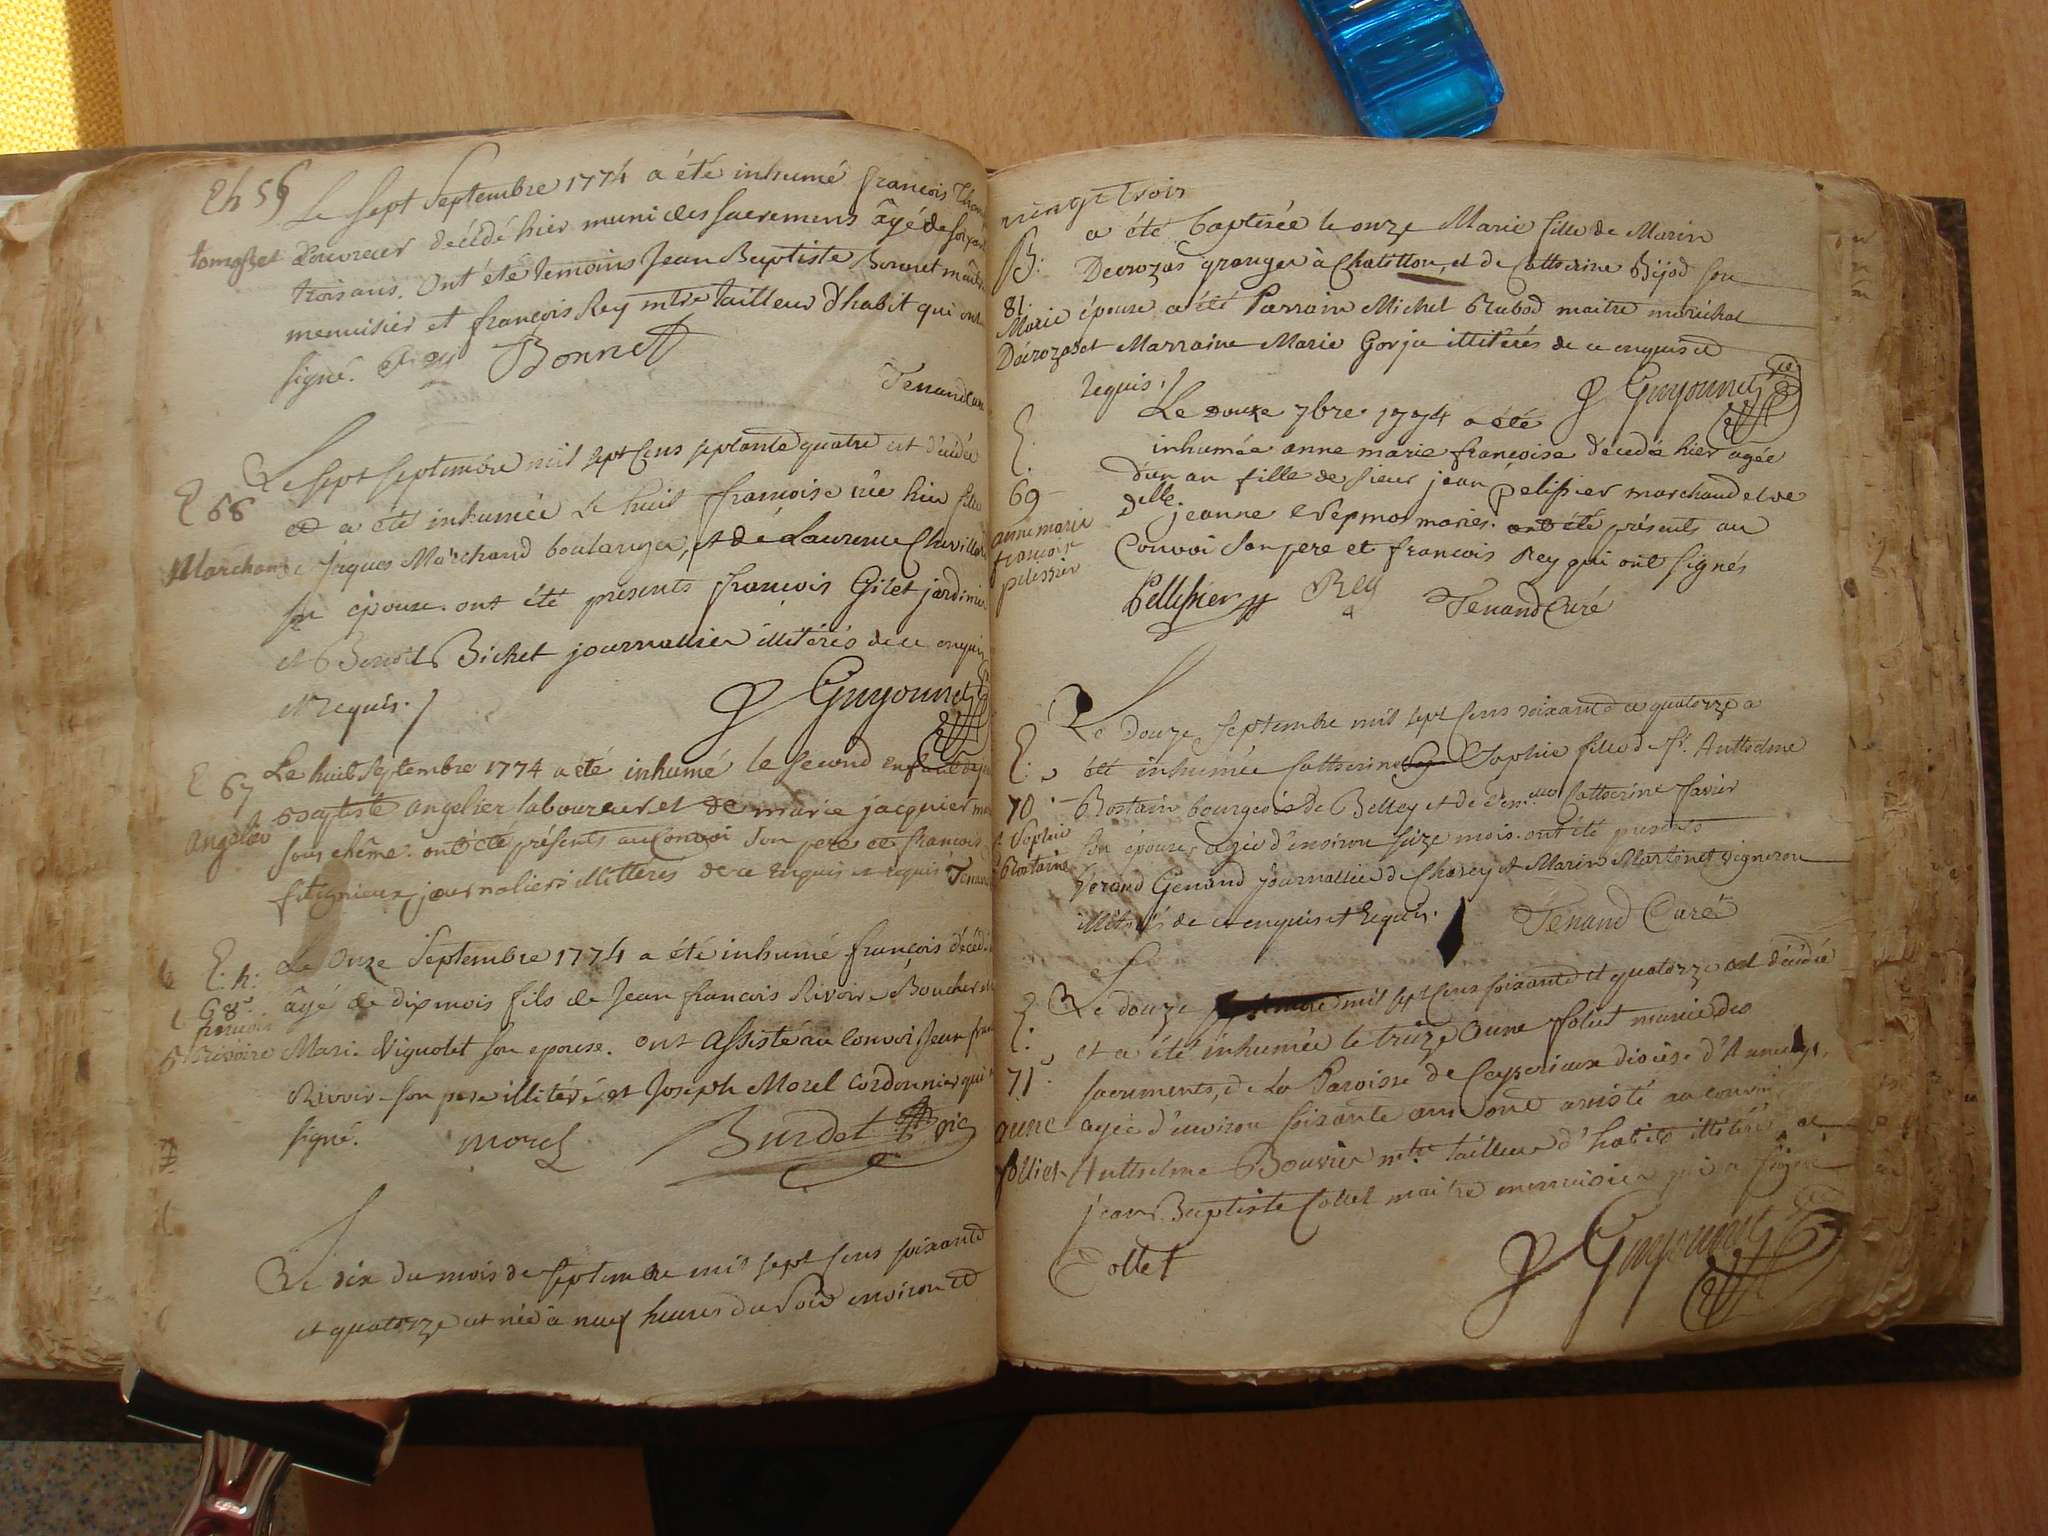 Eh 59
Le sept Septembre 1774 a été inhumé françois
décédé hier muni des sacremens âgé de
trois ans. Ont été temoins Jean Baptiste Bonnet
menuisier et françois Rey mtre tailleur d'habit qui ont
signé. Bonnet
Tenand
Le sept septembre mil sept Cens septante quatre est décédée
E 66
et a été inhumée le huit françoise née hier fille
Marchand
de Jaques Marchand boulanger, et de Laurence
son épouse. ont été présents françois Gilet jardinier
et Benoit Bichet journallier illitérés de ce enquis
et requis.
Guyonnet
E 67
Le huit Septembre 1774 a été inhumé le second enfant de
angelier
baptiste angelier laboureur et de marie jacquier
sous chême. ont été présents au Convoi son pere et francois
journaliers illitteres de ce enquis et requis Tenand
E. h.
68
Le Onze Septembre 1774 a été inhumé françois décédé
âgé de dix mois fils de Jean françois Rivoire Boucher
francois
Rivoire
Marie Vignolet son epouse. Ont assisté au convoi Jean
Rivoire son pere illitéré et Joseph Morel Cordonnier qui
signé. morel Burdet vic
Le dix du mois de septembre mil sept cens soixante
et quatorze est née à neuf heures du soir environ et
vingt trois
B.
81.
Marie
Décrozas
a été baptisée le onze Marie fille de Marin
Decrozas granger à Chatillon, et de Catherine Bijod son
épouse a été Parrain Michel Rubod maitre maréchal
et Marraine Marie Gorju illitérés de ce enquis et
requis. Guyonnet
E.
69
Le douze 7bre 1774 a été
inhumée anne marie françoise décedée hier agée
d'un an fille de sieur jean pelissier marchand et de
anne marie
francoise
pelissier
delle jeanne mariés. ont été présents au
Convoi son pere et francois Rey qui ont signés
Pellissier Rey Tenand Curé
E.
70.
Le douze Septembre mil sept Cens soixante et quatorze a
été inhumée Catherine Sophie fille de Sr. Anthelme
Rostain bourgeois de Belley et de Catherine favier
Sophie
Rostaing
son épouse, agée d'environ seize mois. ont été présents
Genand journallier de Charey et Marin Martinet vigneron
illitérés de ce enquis et requis. Tenand Curé
E.
71.
Le douze septembre mil sept Cens soixante et quatorze est décédée
et a été inhumée le treize anne folliet munie des
sacrements, de La Paroisse de Ceyserieux diocèse d'Annecy,
anne
folliet
agée d'environ soixante ans ont assisté au convoi
Anthelme Bouvier mtre tailleur d'habits illitéré, et
jean Baptiste Collet maitre menuisier qui a signé
Collet Guyonnet